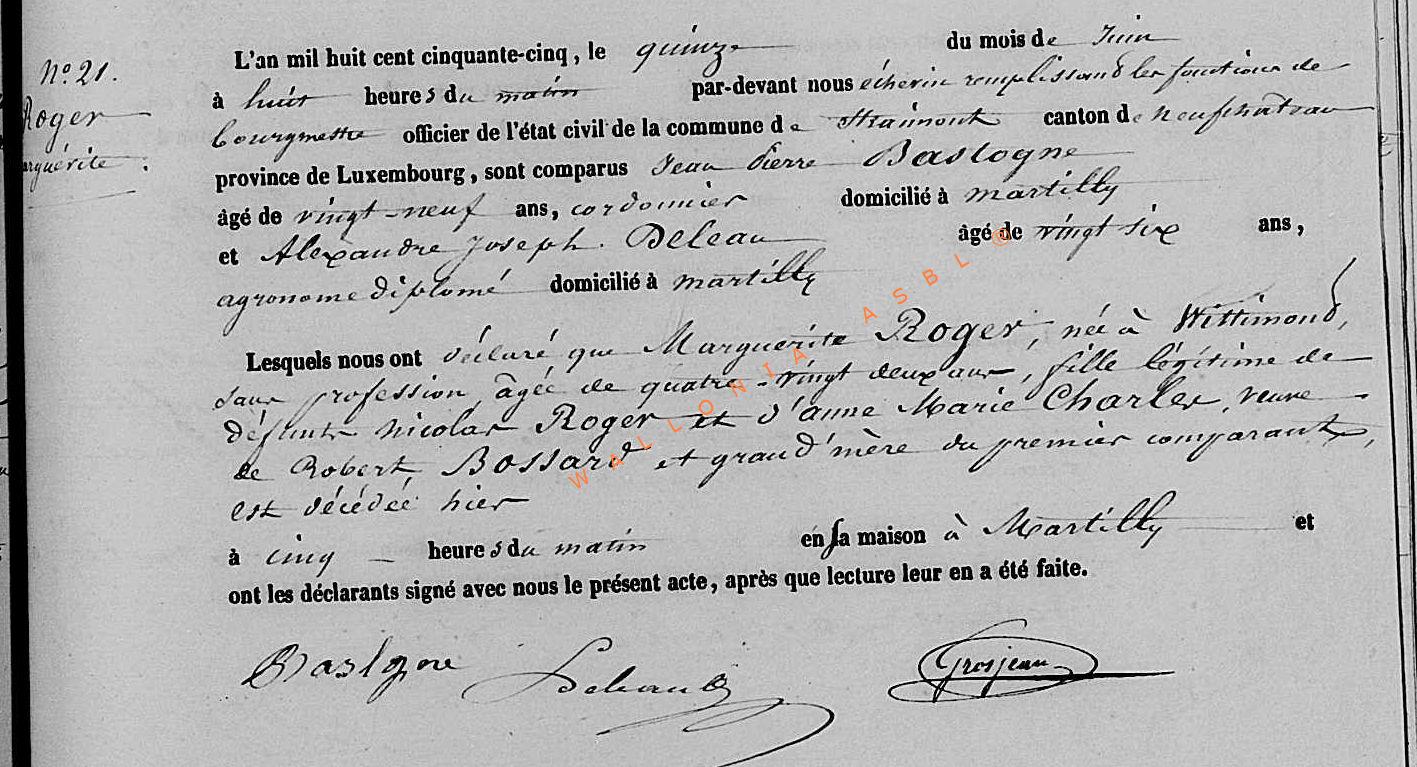 N.º 21.
Roger
Marguérite.
L'an mil huit cent cinquante-cinq, le quinze du mois de Juin
à huit heures du matin par-devant nous échevin remplissand les fonctions de
bourgmestre officier de l'état civil de la commune de Straimont canton de Neufchâteau
province de Luxembourg, sont comparus Jean Pierre Bastogne
âgé de vingt-neuf ans, cordonnier domicilié à martilly
et Alexandre Joseph Deleau âgé de vingt six ans,
agronome diplomé domicilié à martilly
Lesquels nous ont déclaré que Marguérite Roger, née à Wittimond,
sans profession, âgée de quatre-vingt deux ans, fille légitime de
défunts nicolas Roger et d'anne Marie Charles, veuve
de Robert Bossard et grand'mère du premier comparant,
est décédée hier
à cinq heures du matin en sa maison à Martilly et
ont les déclarants signé avec nous le présent acte, après que lecture leur en a été faite.
Grosjean
WALLONIA ASBL ©